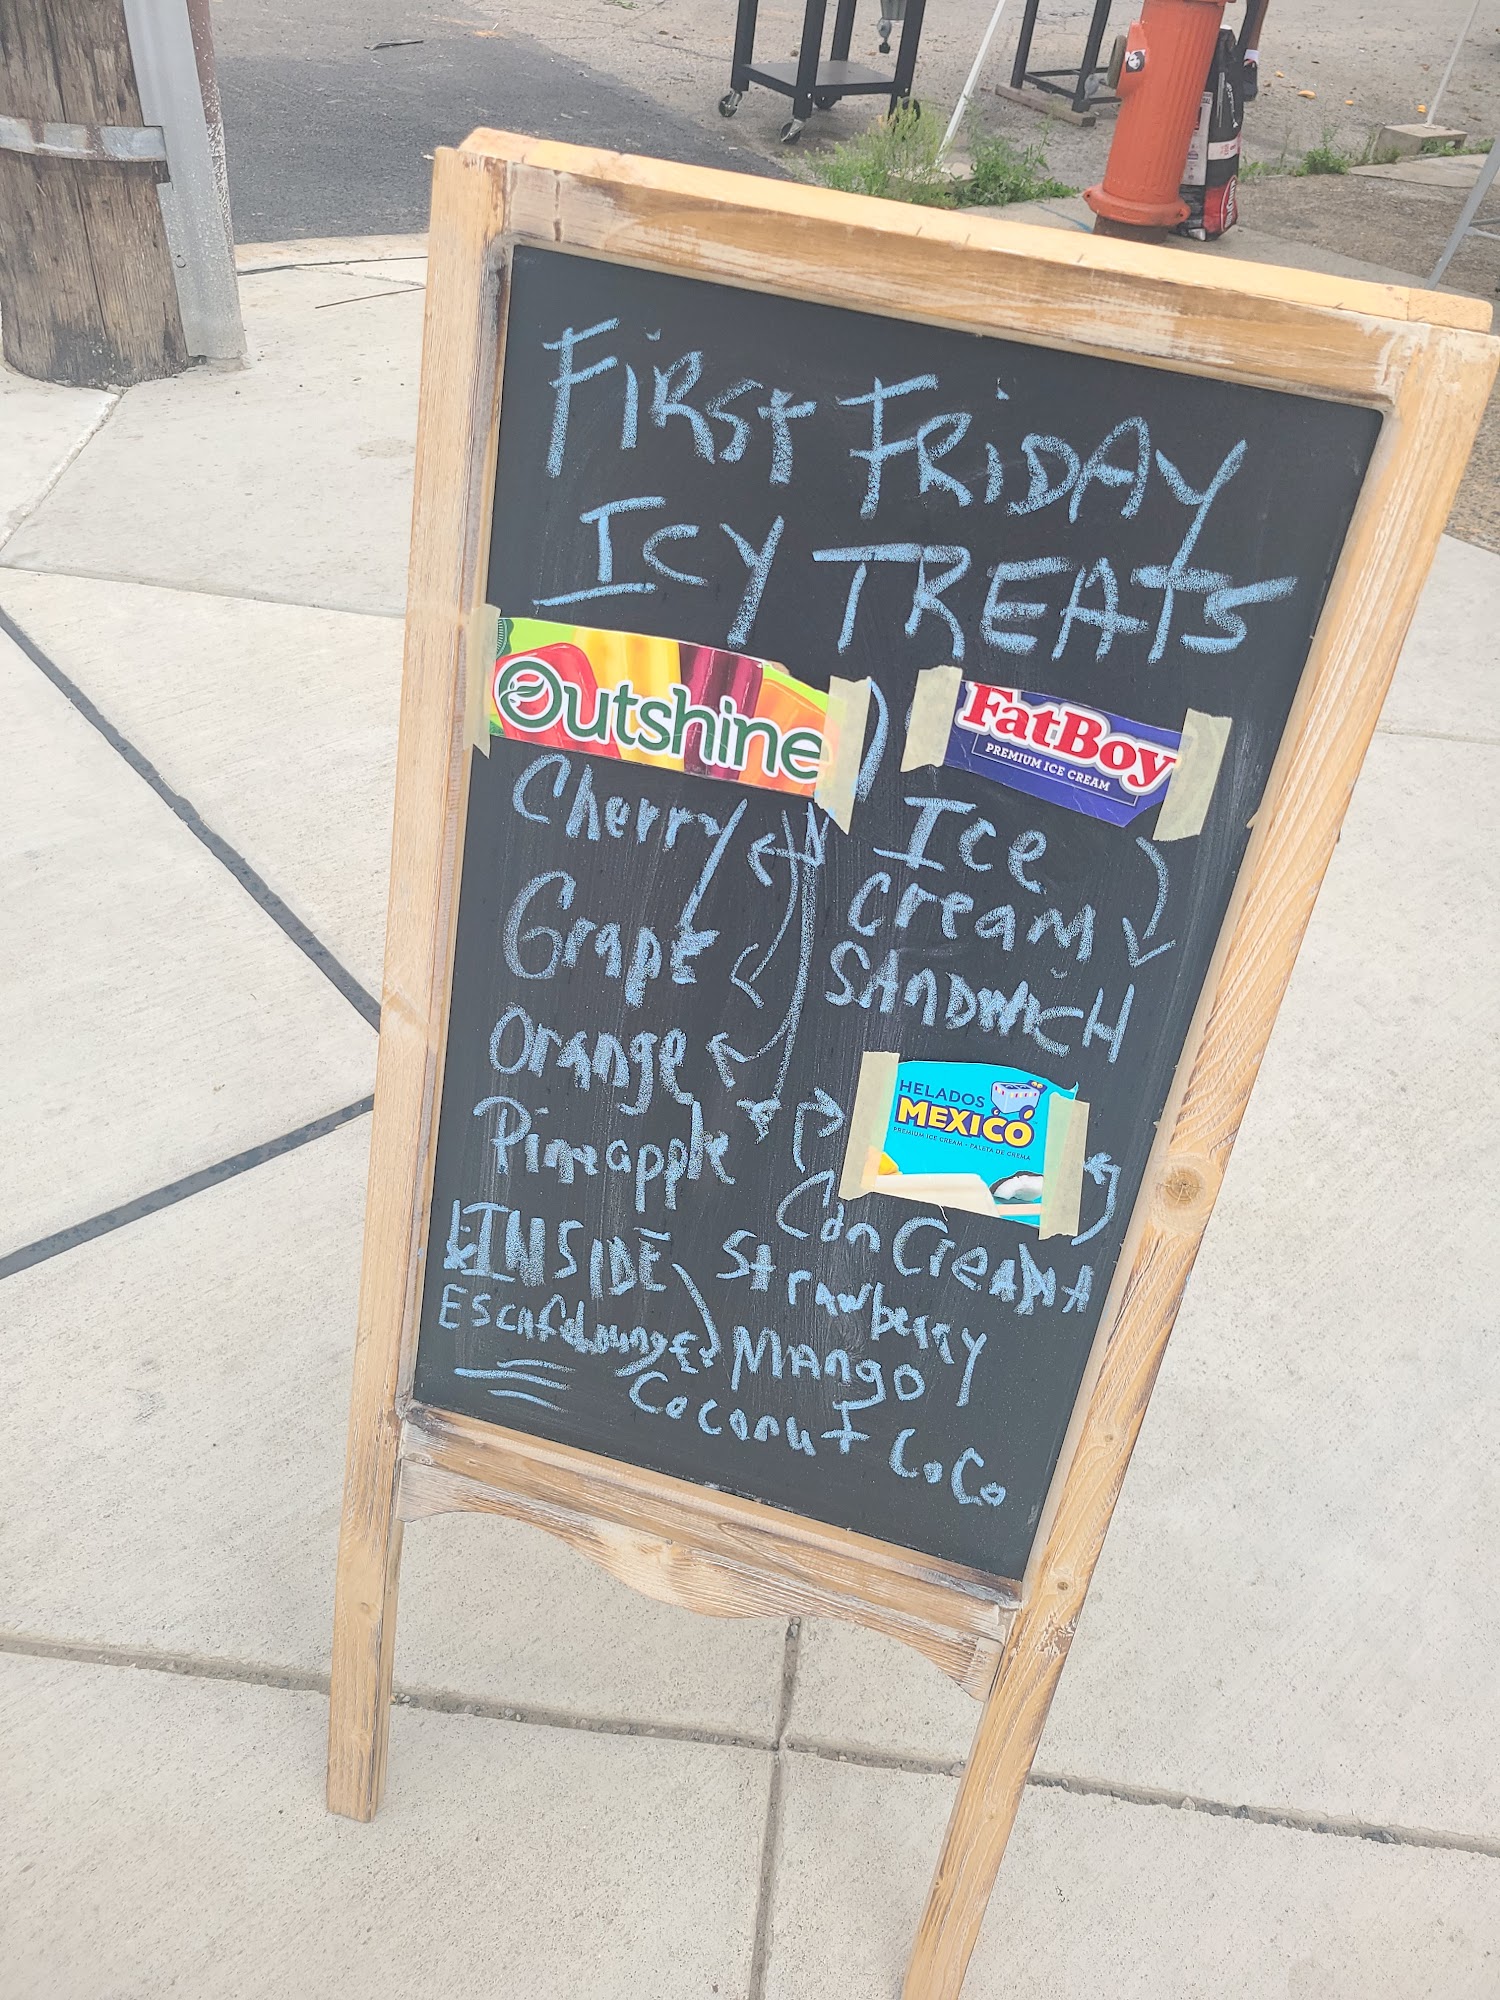 First Friday
Icy Treats
Outshine
Cherry
Grape
Orange
Pineapple
INSIDE
FatBoy
PREMIUM ICE CREAM
Ice
Cream
SANDWICH
HELADOS
MEXICO
PREMIUM ICE CREAM - PALETA DE CREMA
Con Crema
Strawberry
Mango
Coconut Coco